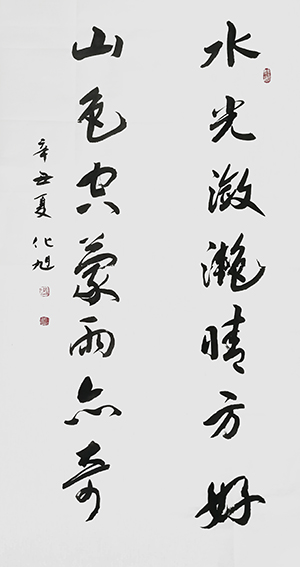 水光潋滟晴方好
山色空蒙雨亦奇
辛丑夏化旭